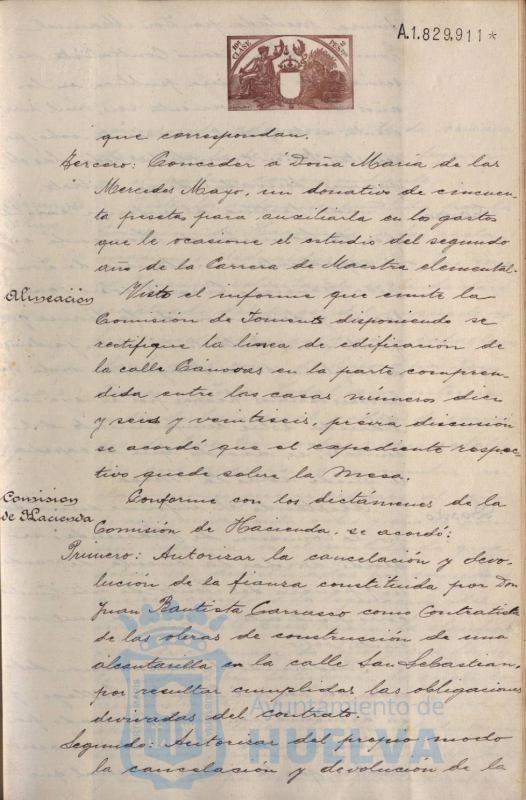 A.1.829,911*
10ª CLASE
2 PESETAS
que correspondan.
Tercero: Conceder á Doña Maria de las
Mercedes Mayo, un donativo de cincuen-
ta pesetas para auxiliarla en los gastos
que le ocasione el estudio del segundo
año de la Carrera de Maestra elemental.
Alineación
Visto el informe que emite la
Comisión de Fomento disponiendo se
rectifique la linea de edificación de
la calle Cánovas en la parte compren-
dida entre las casas números diez
y seis y veintiseis, prévia discusión
se acordó que el expediente respec-
tivo quede sobre la Mesa.
Comision
de Hacienda
Conforme con los dictámenes de la
Comisión de Hacienda, se acordó:
Primero: Autorizar la cancelación y devo-
lución de la fianza constituida por Don
Juan Bautista Carrasco como Contratista
de las obras de construcción de una
alcantarilla en la calle San Sebastian,
por resultar cumplidas las obligaciones
derivadas del contrato.
Segundo: Autorizar del propio modo
la cancelación y devolución de la
Ayuntamiento de
HUELVA